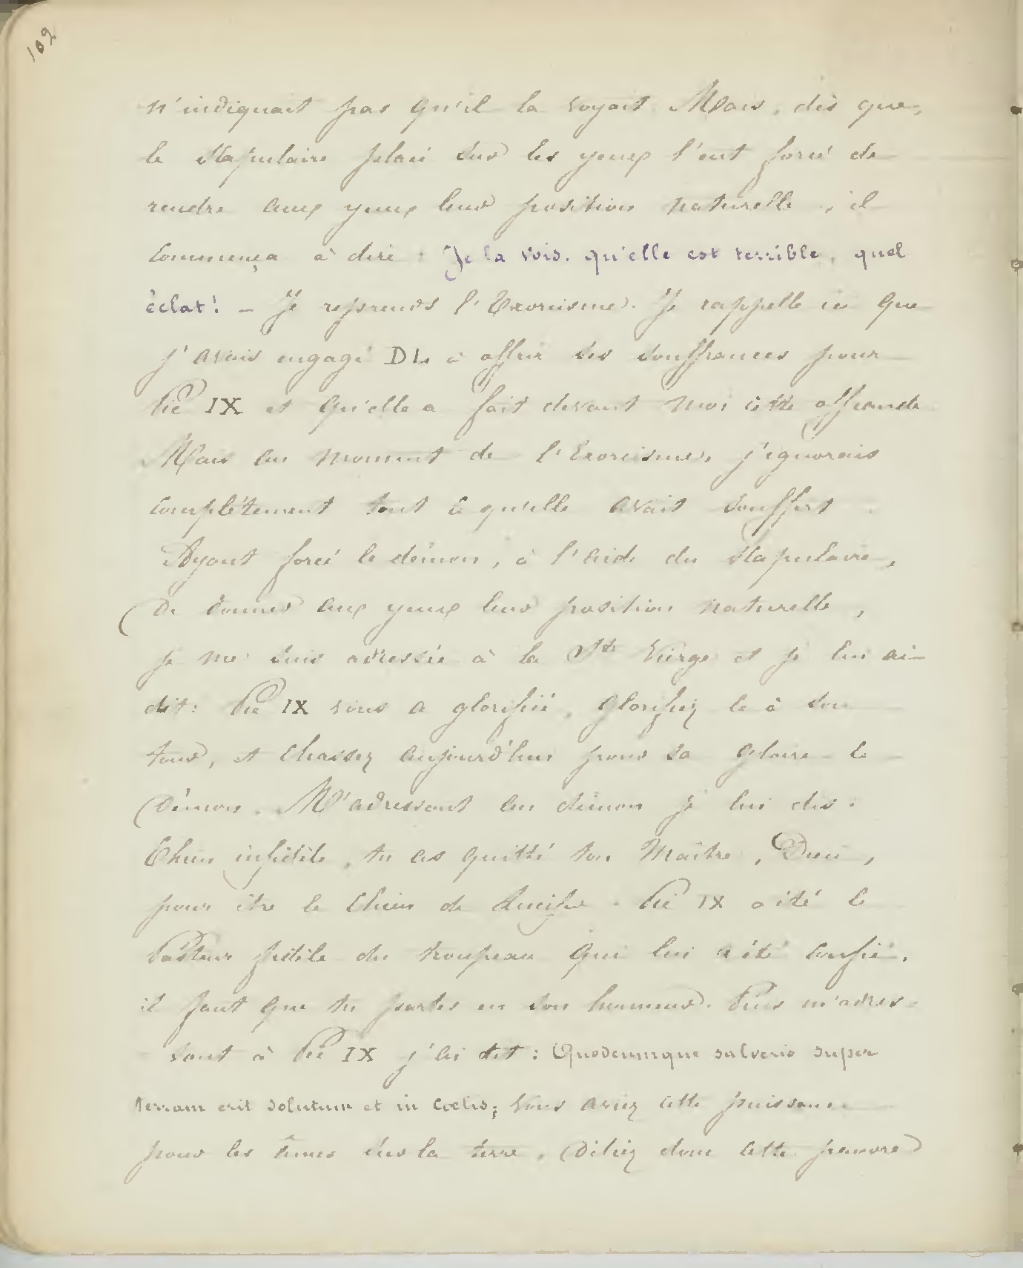 102
n'indiquait pas qu'il la voyait. Mais, dès que,
le scapulaire placé sur les yeux l'eut forcé de
rendre aux yeux leur position naturelle, il
commença à dire : Je la vois. qu'elle est terrible, quel
éclat! – Je reprends l'Exorcisme. Je rappelle ici que
j'avais engagé DL. à offrir ses souffrances pour
Pie IX et qu'elle a fait devant moi cette offrande.
Mais au moment de l'Exorcisme, j'ignorais
complétement tout ce qu'elle avait souffert.
Ayant forcé le démon, à l'aide du scapulaire,
de donner aux yeux leur position naturelle,
je me suis adressée à la Ste Vierge et je lui ai
dit: Pie IX vous a glorifiée, glorifiez le à son
tour, et chassez aujourd'hui pour sa gloire le
Démon. M'adressant au démon je lui dis :
Chien infidèle, tu as quitté ton Maître, Dieu,
pour être le chien de Lucifer. Pie IX a été le
Pasteur fidèle du troupeau qui lui a été confié,
il faut que tu partes en son honneur. Puis m'adres-
sant à Pie IX j'ai dit : Quodcumque solveris super
terram erit solutum et in coelis; vous aviez cette puissance
pour les âmes sur la terre. Déliez donc cette pauvre